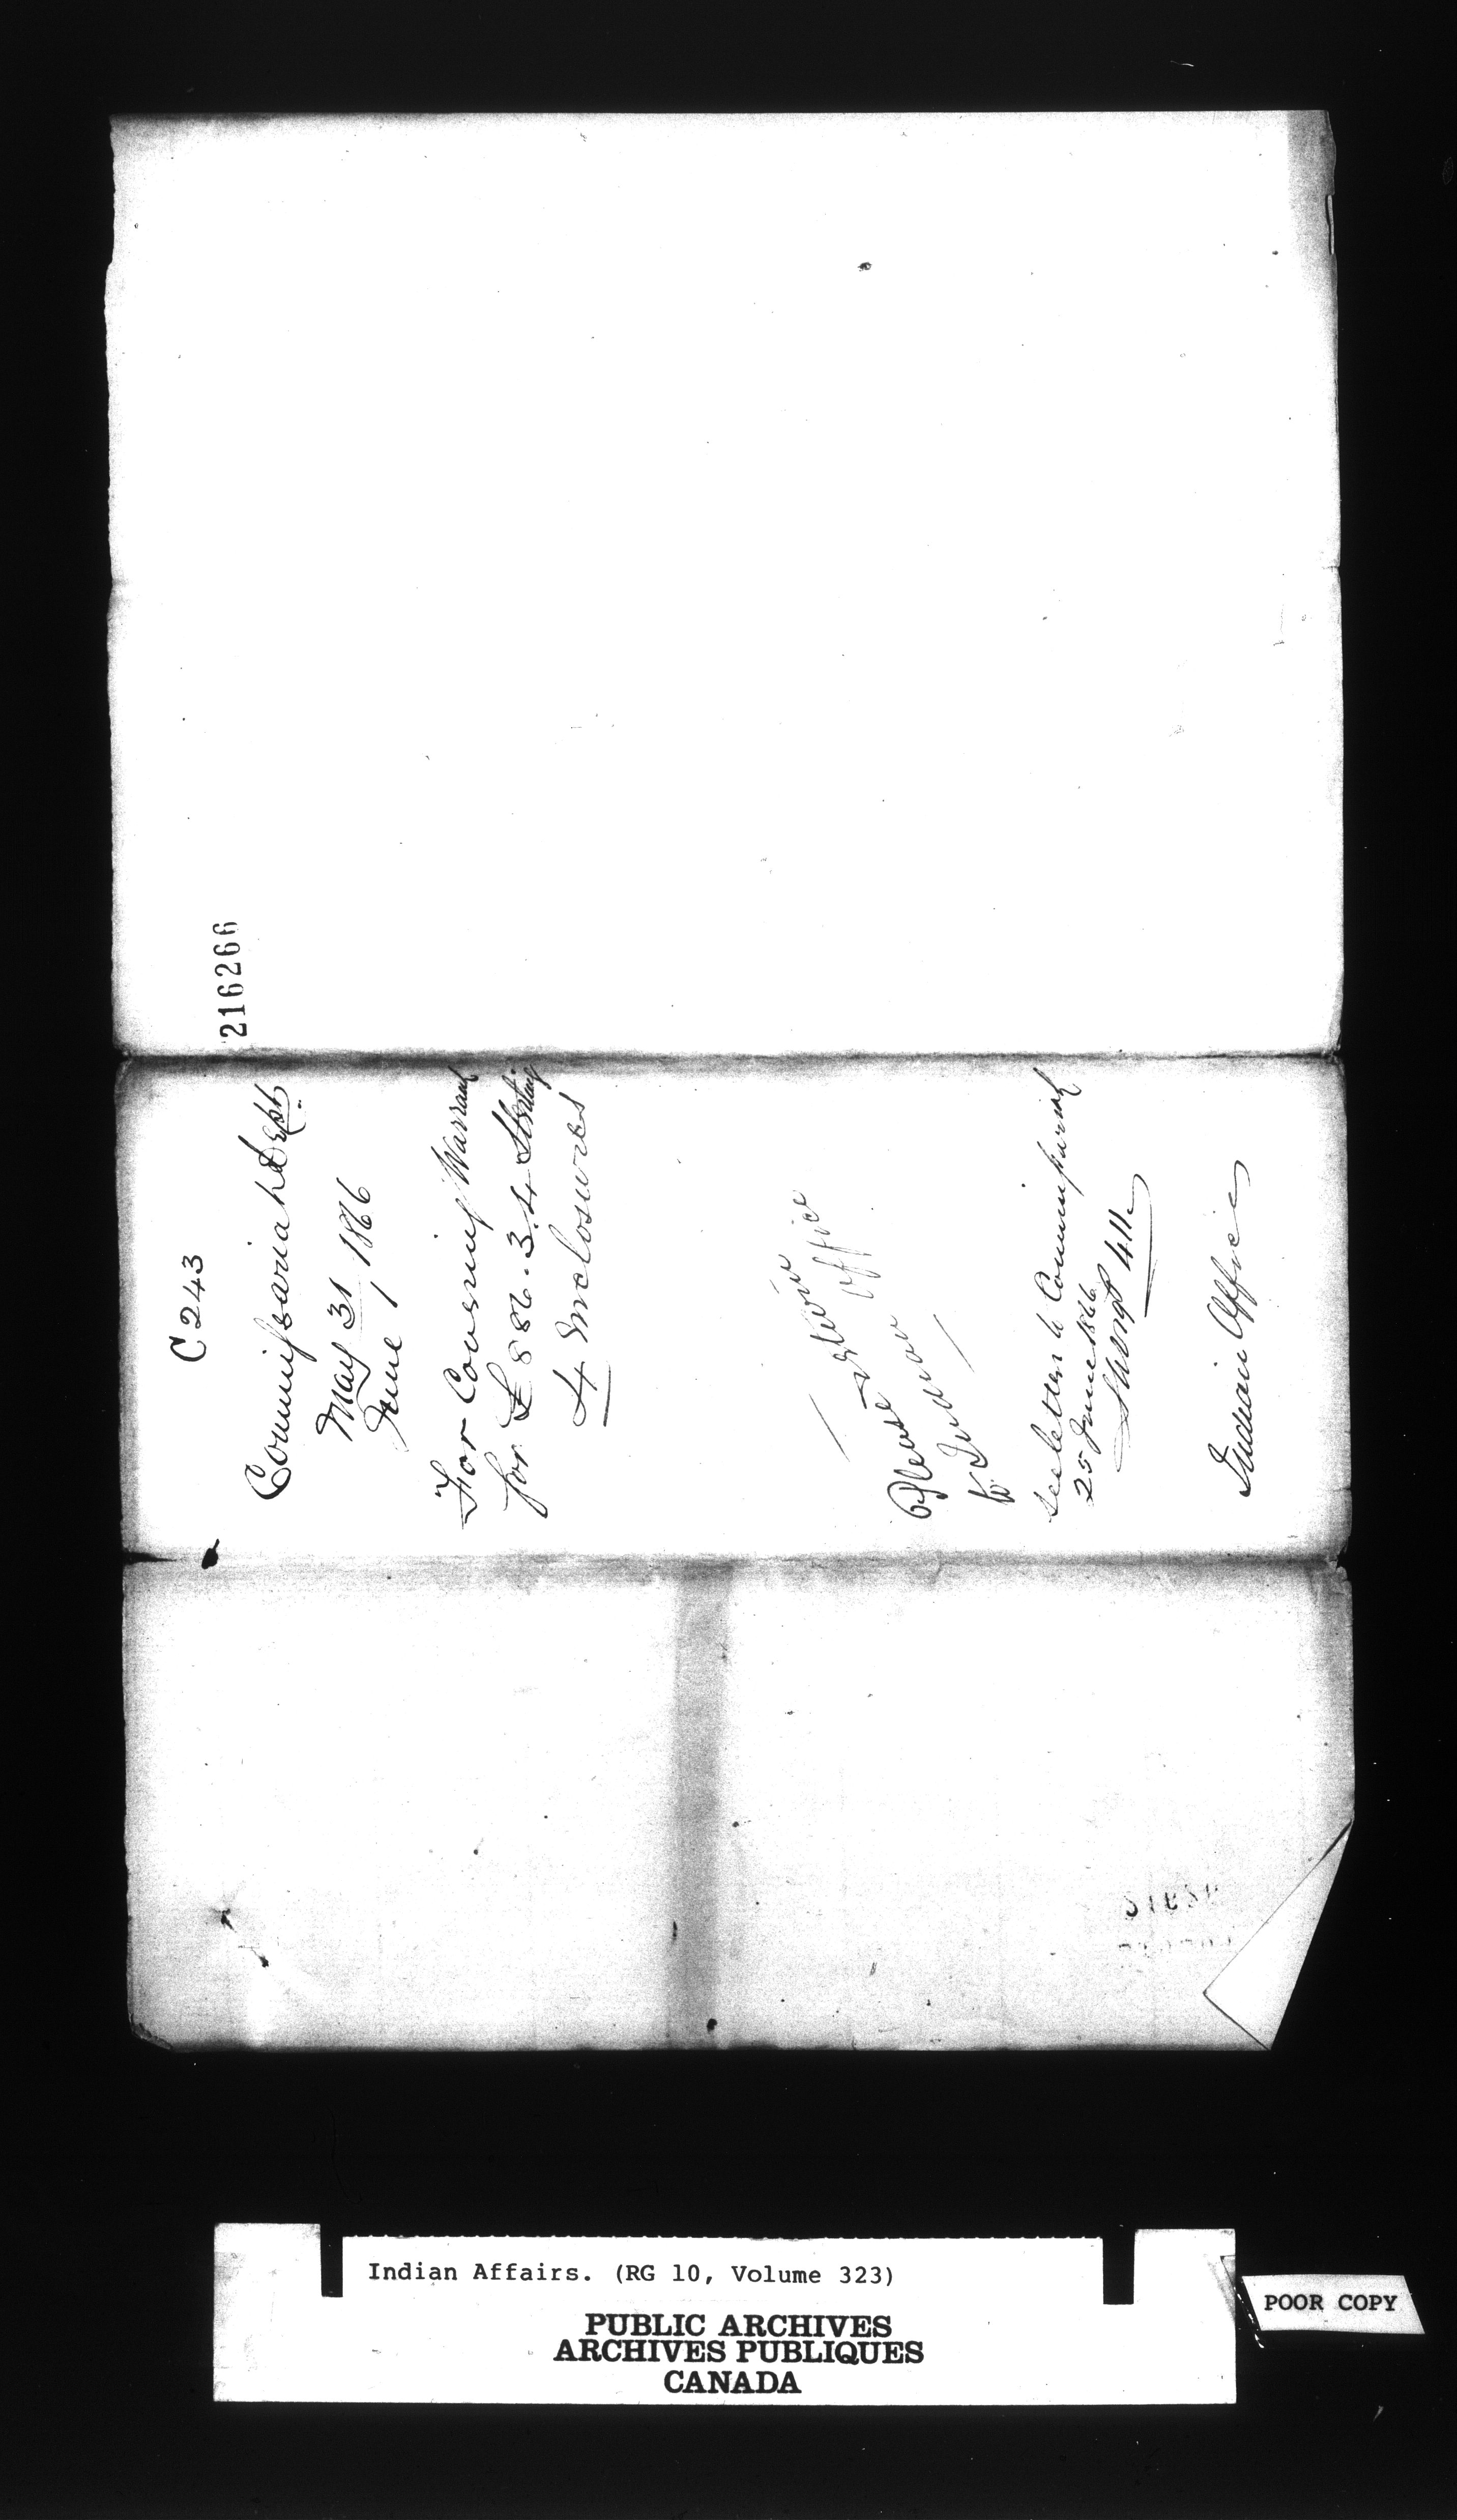 216266
C 243
Commissariat Dept.
May 31
June 1, 1866
For Covering Warrant
for £ 886. 3. 4 Sterling
4 Inclosures
Please return
to Indian Office
See letter to Commissariat
25 June 1866
411
Indian Office
Indian Affairs. (RG 10, Volume 323)
PUBLIC ARCHIVES
ARCHIVES PUBLIQUES
CANADA
POOR COPY